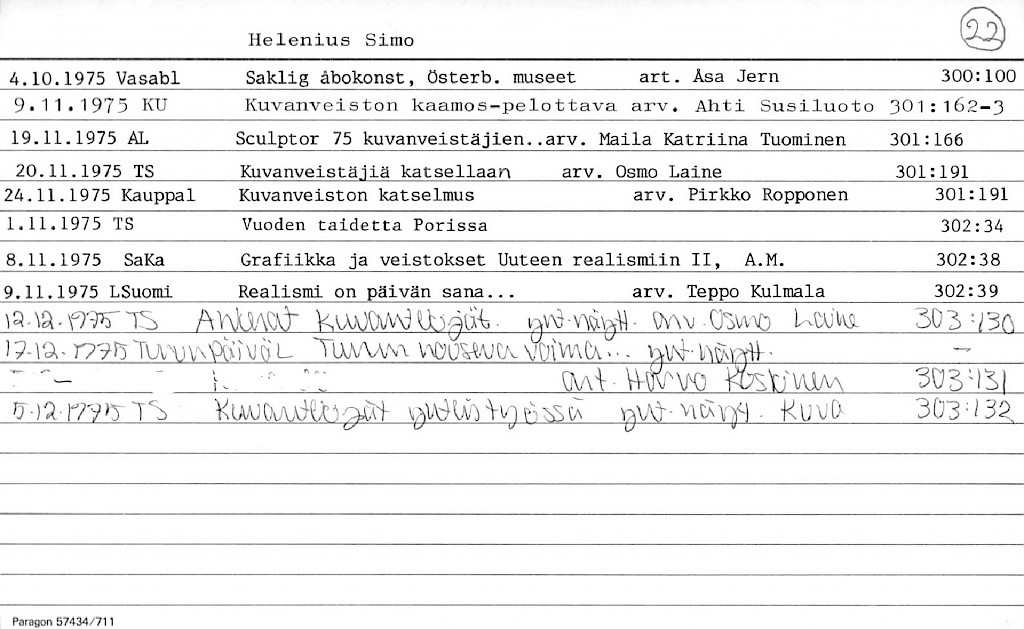 Helenius Simo 22
4.10.1975 Vasabl Saklig åbokonst, Österb. museet art. Åsa Jern 300:100
9.11.1975 KU Kuvanveiston kaamos-pelottava arv. Ahti Susiluoto 301:162-3
19.11.1975 AL Sculptor 75 kuvanveistäjien..arv. Maila Katriina Tuominen 301:166
20.11.1975 TS Kuvanveistäjiä katsellaan arv. Osmo Laine 301:191
24.11.1975 Kauppal Kuvanveiston katselmus arv. Pirkko Ropponen 301:191
1.11.1975 TS Vuoden taidetta Porissa 302:34
8.11.1975 SaKa Grafiikka ja veistokset Uuteen realismiin II, A.M. 302:38
9.11.1975 LSuomi Realismi on päivän sana... arv. Teppo Kulmala 302:39
12.12.1975 TS Ahkerat kuvantekijät. yht.näytt. arv. Osmo Laine 303:130
17.12.1975 Turunpäiväl Turun nouseva voima... yht.näytt. -
-"- art. Harno Koskinen 303:131
5.12.1975 TS Kuvantekijät yhteistyössä yht.näyt. Kuva 303:132
Paragon 57434/711